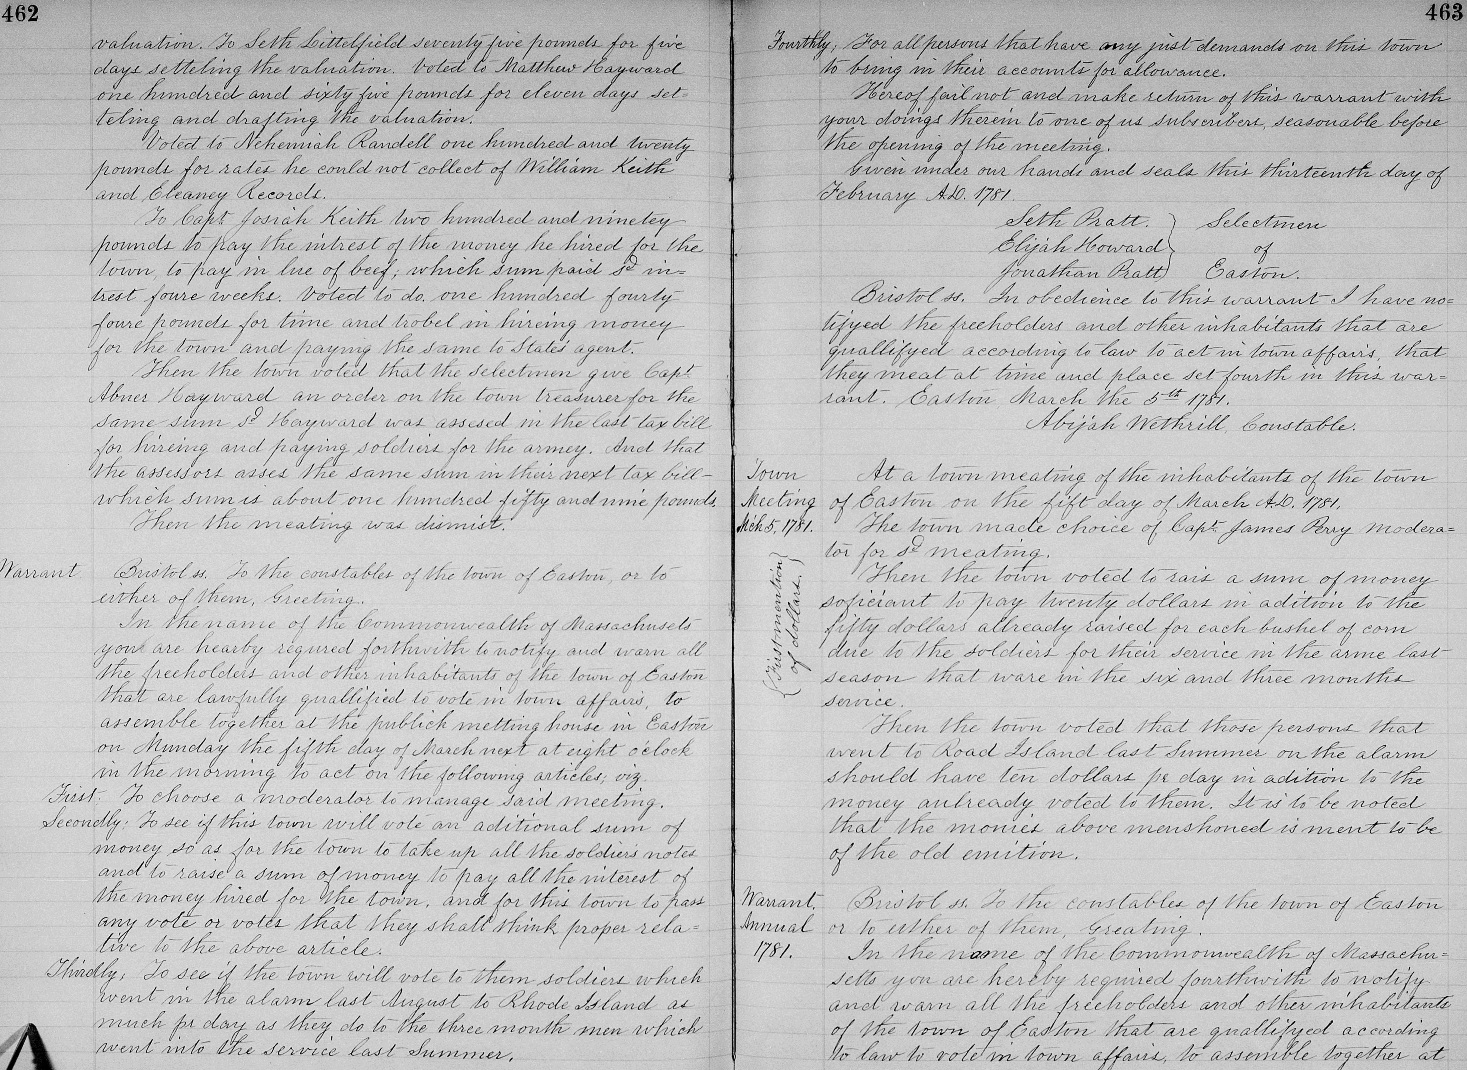 462
valuation. To Seth Littelfield seventy five pounds for five
days setteling the valuation. Voted to Matthew Hayward
one hundred and sixty five pounds for eleven days set=
teling and drafting the valuation.
Voted to Nehemiah Randell one hundred and twenty
pounds for rates he could not collect of William Keith
and Eleaney Records.
To Capt. Josiah Keith two hundred and ninetey
pounds to pay the intrest of the money he hired for the
town, to pay in lue of beef; which sum paid sd in=
trest foure weeks. Voted to do. one hundred fourty
foure pounds for time and trobel in hireing money
for the town and paying the same to States agent.
Then the town voted that the selectmen give Capt.
Abner Hayward an order on the town treasurer for the
same sum sd Hayward was assesed in the last tax bill
for hireing and paying soldiers for the armey. And that
the assessors asses the same sum in their next tax bill—
which sum is about one hundred fifty and nine pounds.
Then the meating was dismist.
Warrant
Bristol ss. To the constables of the town of Easton, or to
either of them, Greeting.
In the name of the Commonwealth of Massachusets
you are hearby requred forthwith to notify and warn all
the freeholders and other inhabitants of the town of Easton
that are lawfully quallified to vote in town affairs, to
assemble together at the publick metting house in Easton
on Munday the fifth day of March next at eight oclock
in the morning to act on the following articles; viz.
First. To choose a moderator to manage said meeting.
Secondly: To see if this town will vote an aditional sum of
money so as for the town to take up all the soldiers notes
and to raise a sum of money to pay all the interest of
the money hired for the town, and for this town to pass
any vote or votes that they shall think proper rela=
tive to the above article.
Thirdly; To see if the town will vote to them soldiers which
went in the alarm last August to Rhode Island as
much pr day as they do to the three month men which
went into the service last Summer.
463
Fourthly; For all persons that have any just demands on this town
to bring in their accounts for allowance.
Hereof fail not and make return of this warrant with
your doings therein to one of us subscribers, seasonable before
the opening of the meeting.
Given under our hands and seals this thirteenth day of
February A.D. 1781.
Seth Pratt. } Selectmen
Elijah Howard } of
Jonathan Pratt } Easton.
Bristol ss. In obedience to this warrant I have no=
tifyed the freeholders and other inhabitants that are
quallifyed according to law to act in town affairs, that
they meat at time and place set fourth in this war=
rant. Easton, March the 5th 1781.
Abijah Wethrill, Constable.
Town
Meeting
Mch 5, 1781.
At a town meating of the inhabitants of the town
of Easton on the fift day of March A.D. 1781.
The town made choice of Capt. James Perry modera=
tor for sd meating.
{First mention
of dollars.}
Then the town voted to rais a sum of money
soficiant to pay twenty dollars in adition to the
fifty dollars allready raised for each bushel of corn
due to the soldiers for their service in the arme last
season that ware in the six and three months
service.
Then the town voted that those persons that
went to Road Island last Summer on the alarm
should have ten dollars pr day in adition to the
money aulready voted to them. It is to be noted
that the monies above menshoned is ment to be
of the old emition.
Warrant.
Annual
1781.
Bristol ss. To the constables of the town of Easton
or to either of them, Greating.
In the name of the Commonwealth of Massachu=
setts you are hereby required fourthwith to notify
and warn all the freeholders and other inhabitants
of the town of Easton that are quallifyed according
to law to vote in town affairs, to assemble together at